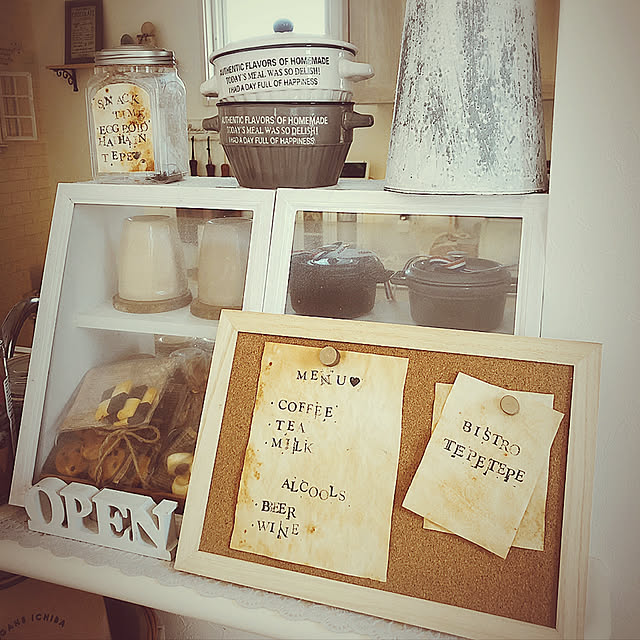 AUTHENTIC FLAVORS OF HOMEMADE
TODAY'S MEAL WAS SO DELISH!
I HAD A DAY FULL OF HAPPINESS
AUTHENTIC FLAVORS OF HOMEMADE
TODAY'S MEAL WAS SO DELISH!
I HAD A DAY FULL OF HAPPINESS
SNACK
TIME
TEPE♥
OPEN
MENU♥
・COFFEE
・TEA
・MILK
ALCOOLS
・BEER
・WINE
BISTRO
TEPETEPE
ICHIBA